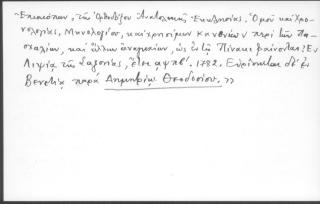 ~Ἐπισκόπων, τῆς Ὀρθοδόξου Ἀνατολικῆς Ἐκκλησίας. Ὁμοῦ καὶ Χρο-
νολογίας, Μηνολογίου, καὶ χρησίμων Κανονίων περὶ τῶν Πα-
σχαλίων, καὶ ἄλλων ἀναγκαίων, ὡς ἐν τῷ Πίνακι φαίνονται. Ἐν
Λειψίᾳ τῆς Σαξονίας, ἔτει αψπβ'. 1782. Εὑρίσκεται δ' ἐν
Βενετίᾳ παρὰ Δημητρίῳ Θεοδοσίου. >>